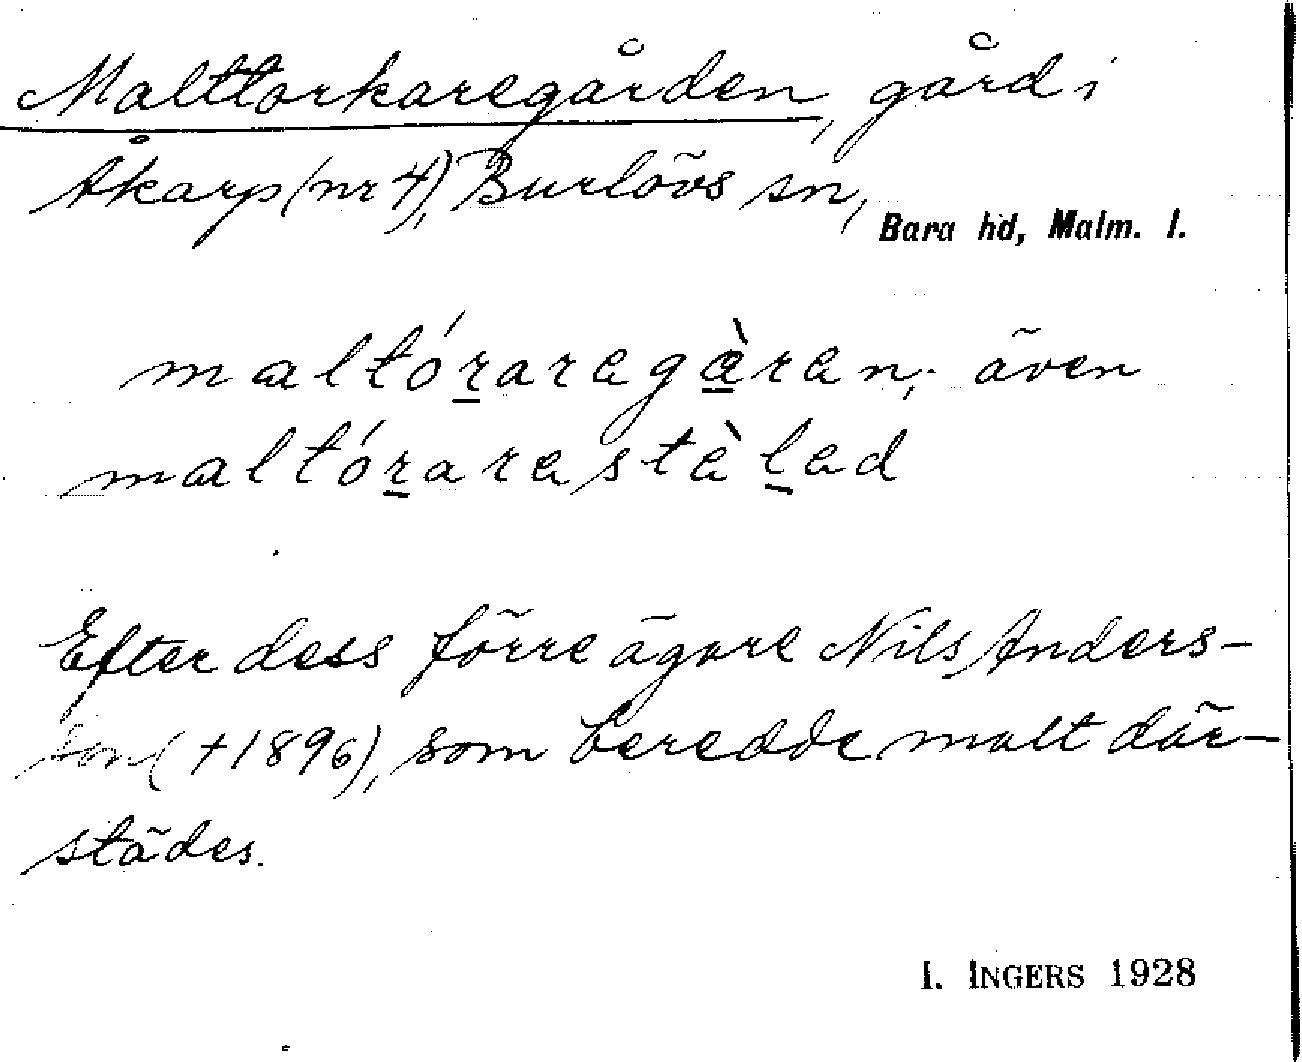 Malttorkaregården, gård i
Åkarp (nr 4), Burlövs sn,
Bara hd, Malm. l.
maltóraregàren; även
maltórarestèled
Efter dess förre ägare Nils Anders-
son (+1896), som beredde malt där-
städes.
I. INGERS 1928